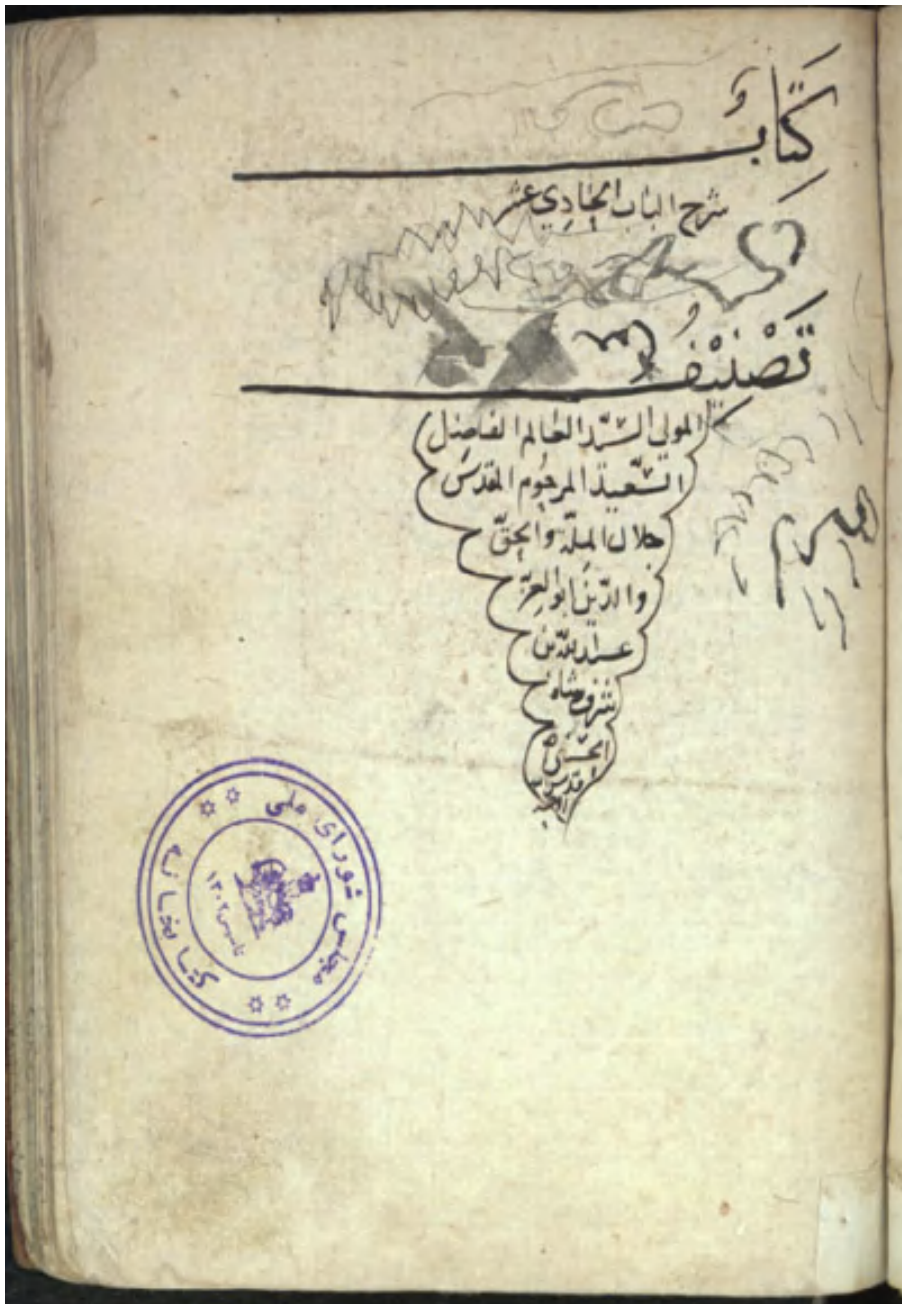 كِتَابُ
شرح الباب الحادي عشر
تَصْنِيْفُ
المولى السيّد العالم الفاضل
السّعيد المرحوم المقدس
جلال الملّة والحقّ
والدّين ابو العزّ
عبد الله بن
شرفشاه
الحسينى
قدس الله
كتابخانه
مجلس شورای ملی
تاسیس ۱۳۰۲